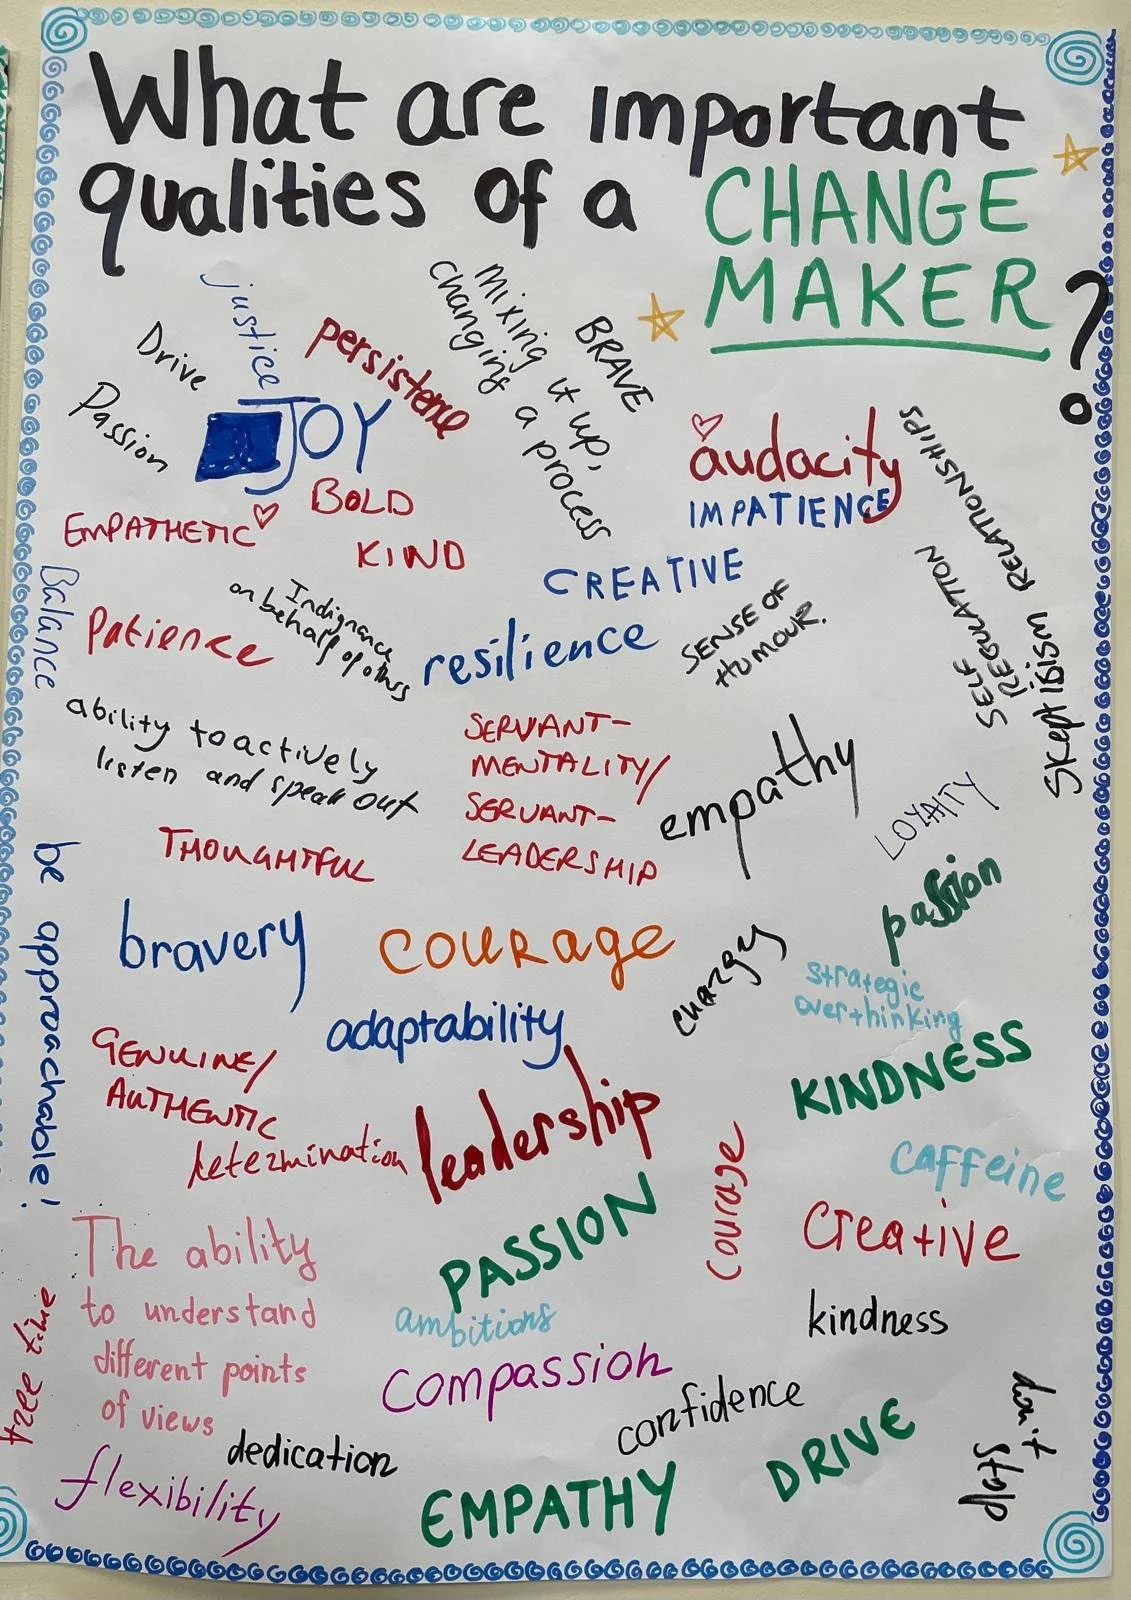 What are important
qualities of a CHANGE
MAKER?
justice
Drive
Passion
persistence
JOY
changing a process
mixing it up,
BRAVE
audacity
IMPATIENCE
RELATIONSHIPS
BOLD
EMPATHETIC
KIND
CREATIVE
SELF
REGULATION
Skeptisism
Balance
Patience
Indignance
on behalf of others
resilience
SENSE OF
HUMOUR.
ability to actively
listen and speak out
SERVANT-
MENTALITY/
SERVANT-
LEADERSHIP
empathy
LOYALTY
THOUGHTFUL
be approachable!
passion
bravery
courage
energy
strategic
overthinking
adaptability
GENUINE/
AUTHENTIC
KINDNESS
determination
leadership
courage
caffeine
PASSION
creative
The ability
to understand
different points
of views
free time
ambitions
kindness
compassion
confidence
don't
stop
dedication
DRIVE
flexibility
EMPATHY